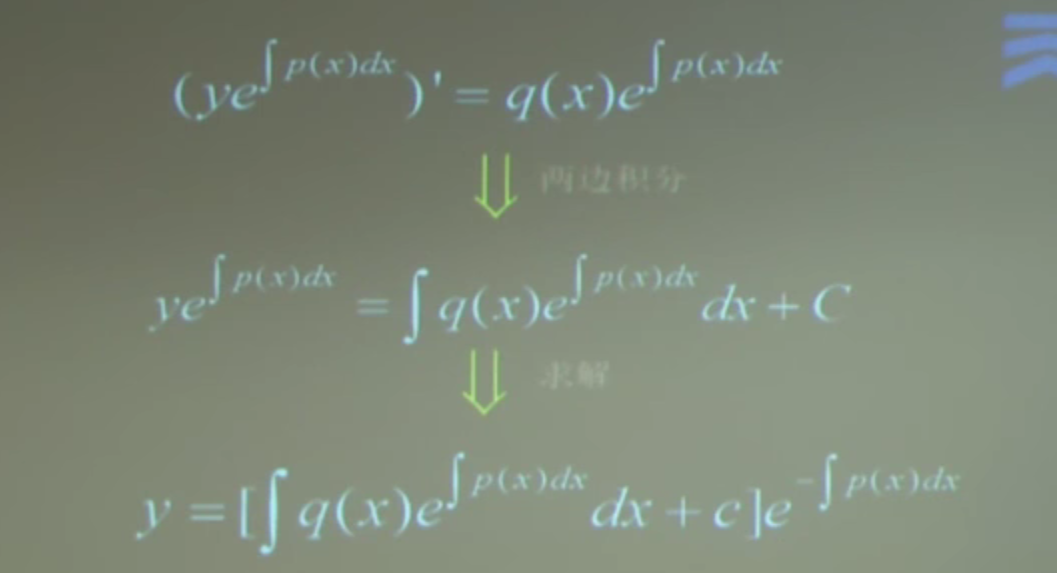 (ye^{∫p(x)dx})' = q(x)e^{∫p(x)dx}
⇓ 两边积分
ye^{∫p(x)dx} = ∫q(x)e^{∫p(x)dx}dx + C
⇓ 求解
y = [∫q(x)e^{∫p(x)dx}dx + c]e^{-∫p(x)dx}